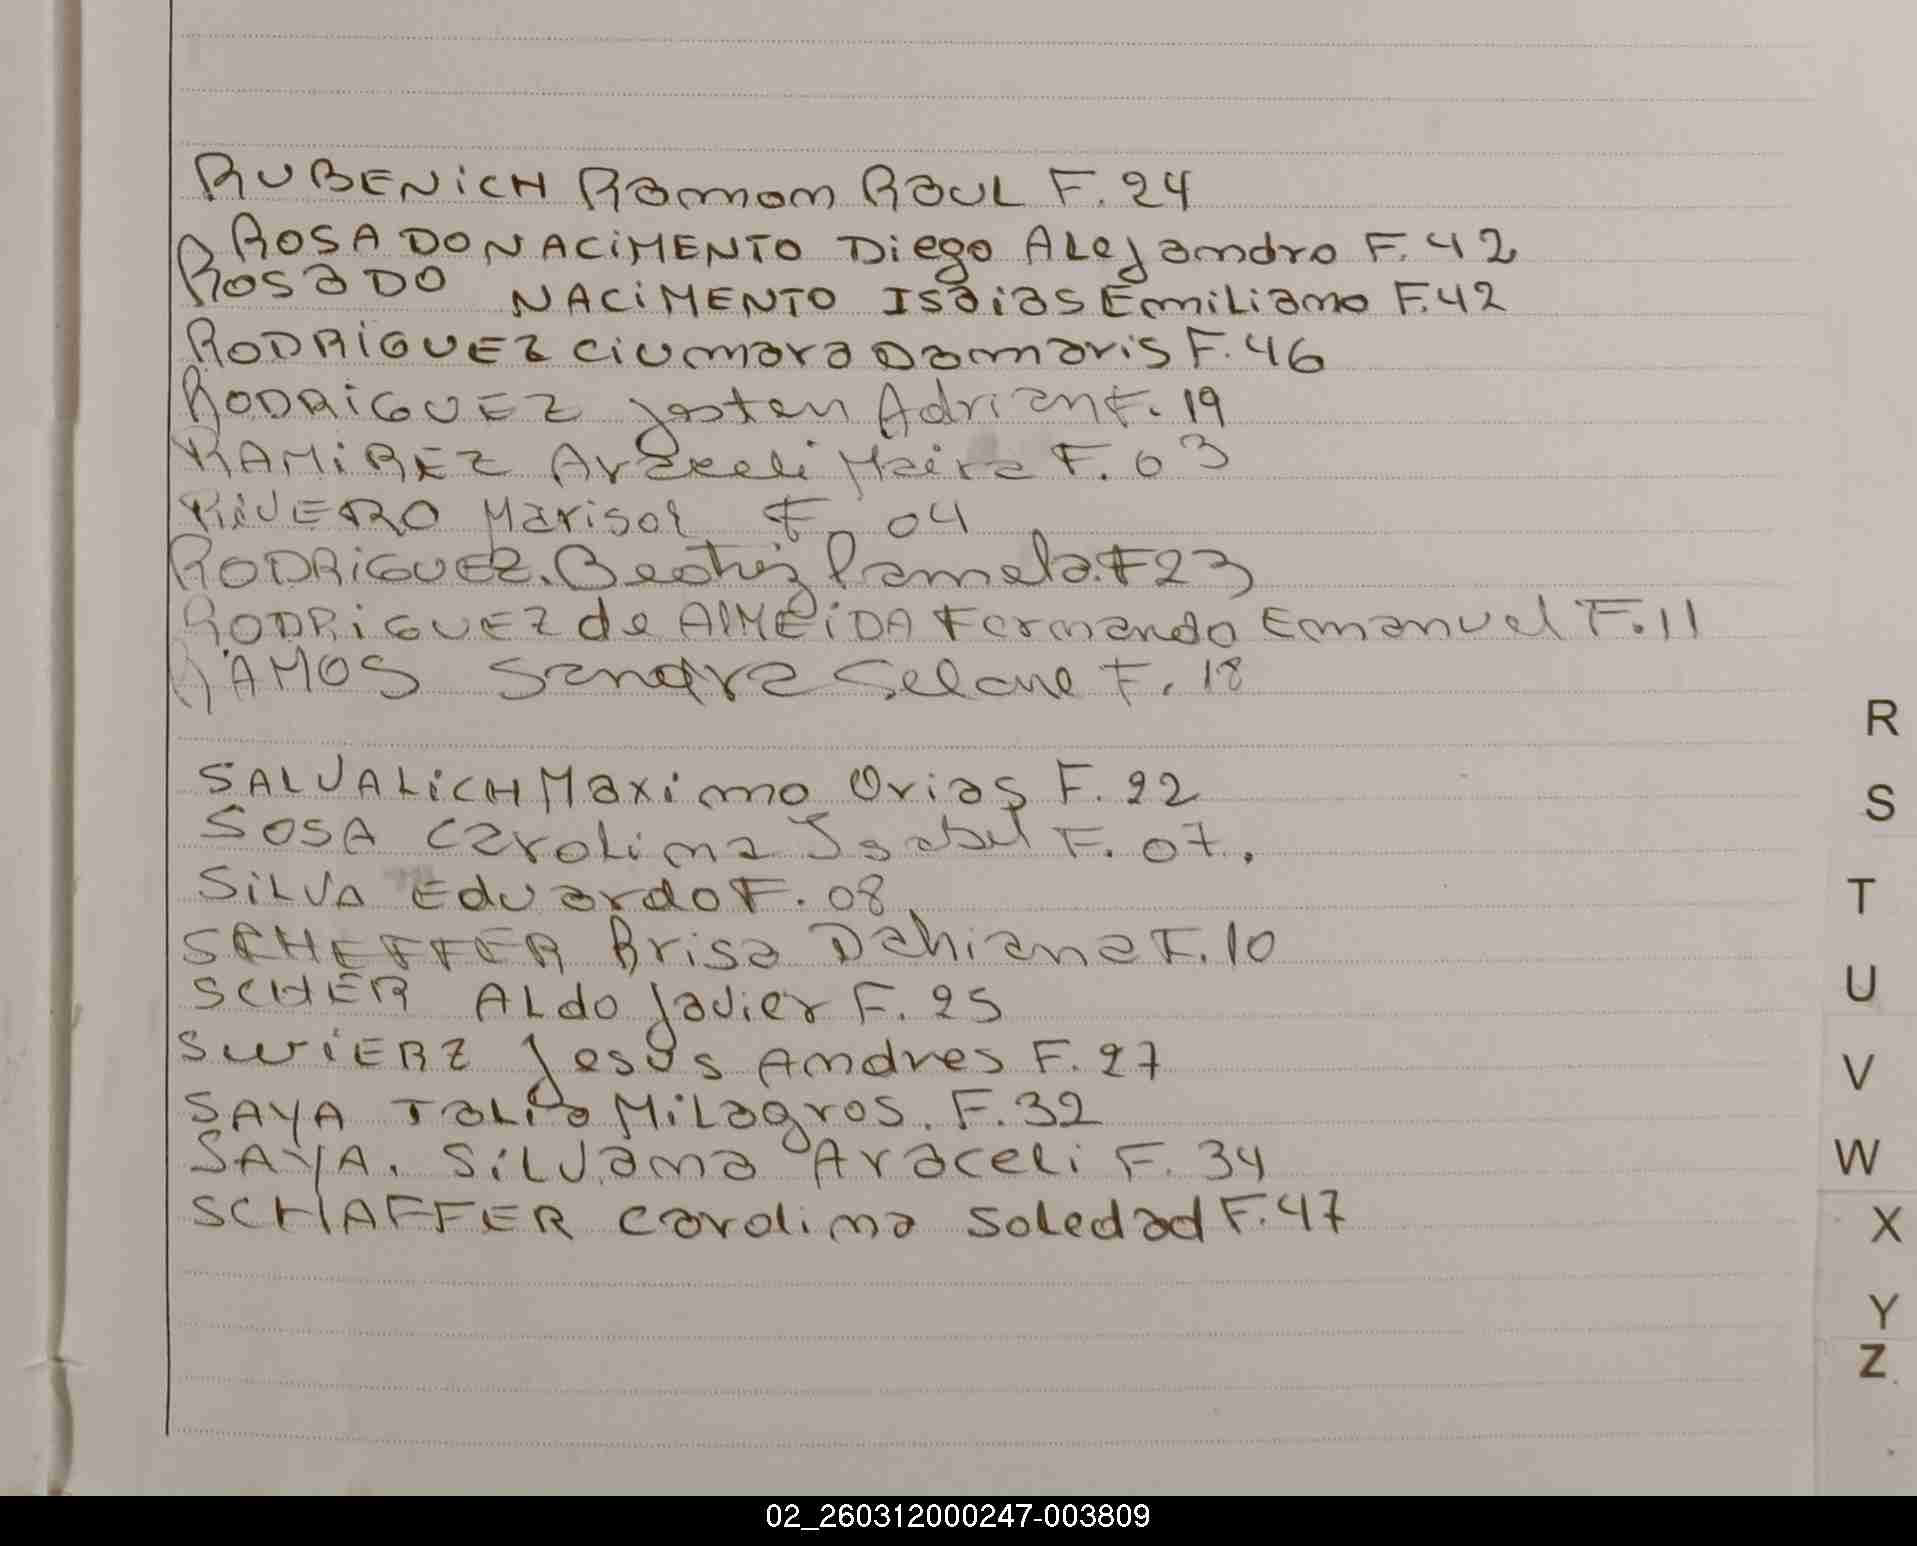 RUBENICH Ramon RAUL F. 24
ROSA DO NACIMENTO Diego ALeJandro F. 42
ROSA DO NACIMENTO ISaias Emiliano F.42
RODRIGUEZ Ciumara Damaris F. 46
RODRIGUEZ Adrian F. 19
RAMIREZ Araceli Maira F. 03
RIVERO Marisol F. 04
RODRIGUEZ. Beatriz Pamela. F 23
RODRIGUEZ de AlMEiDA Fernando Emanuel F. 11
RAMOS Sandra F. 18
SALVALICH Maximo F. 22
SOSA Carolina Isabel F. 07.
SILVA Eduardo F. 08
SCHEFFER Brisa Dahiana F. 10
SCHER ALdo Javier F. 25
SWIERZ Jesus Andres F. 27
SAYA TaLia MiLagros. F. 32
SAYA. SiLvana Araceli F. 34
SCHAFFER Carolina Soledad F. 47
R
S
T
U
V
W
X
Y
Z
02_260312000247-003809